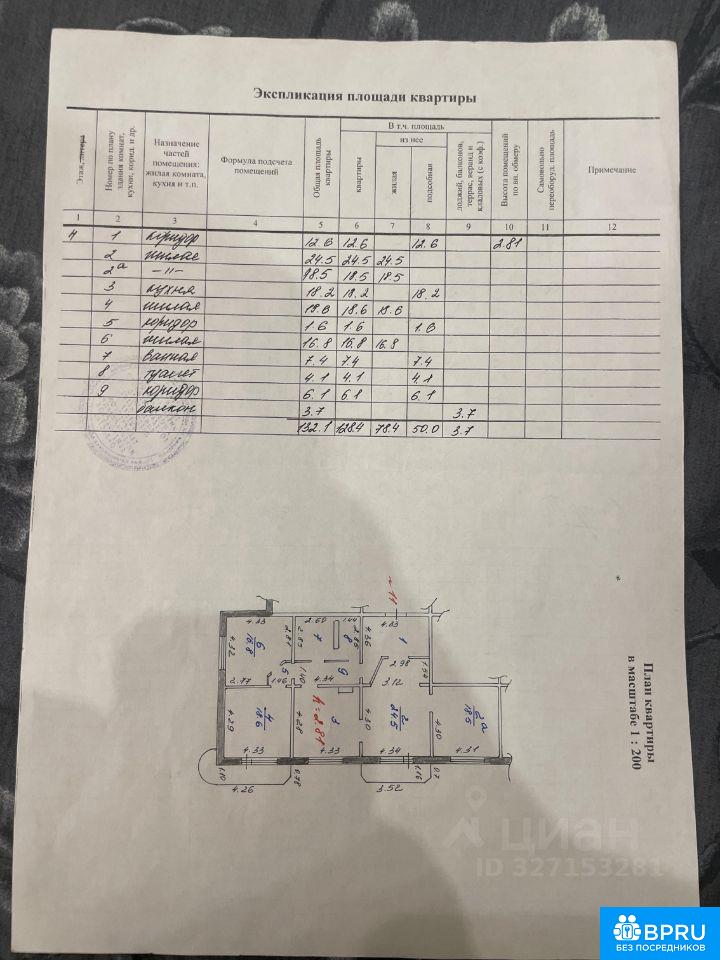 Экспликация площади квартиры
Этаж, литера
Номер по плану здания комнат, кухни, корид. и др.
Назначение частей помещения: жилая комната, кухня и т.п.
Формула подсчета помещений
Общая площадь квартиры
В т.ч. площадь
квартиры
из нее
жилая
подсобная
лоджий, балконов, террас, веранд и кладовых (с коэф.)
Высота помещений по вн. обмеру
Самовольно переоборуд. площадь
Примечание
1 2 3 4 5 6 7 8 9 10 11 12
4 1 коридор 12.6 12.6 12.6 2.81
2 жилая 24.5 24.5 24.5
2а —"— 18.5 18.5 18.5
3 кухня 18.2 18.2 18.2
4 жилая 18.6 18.6 18.6
5 коридор 1.6 1.6 1.6
6 жилая 16.8 16.8 16.8
7 ванная 7.4 7.4 7.4
8 туалет 4.1 4.1 4.1
9 коридор 6.1 6.1 6.1
балкон 3.7 3.7
132.1 128.4 78.4 50.0 3.7
План квартиры
в масштабе 1 : 200
4.33 2.60 1.44 4.03
4.32 6 16.8 2.81 2.85 7 8 2.85 4.36 1
5 9 2.98 1.54
2.77 1.46 1.40 4.34 3.12
4.29 4 18.6 4.28 3 h=2.81 4.30 2 24.5 4.30 2а 18.5
4.33 4.33 4.34 4.31
1.10 4.26 0.78 3.52 1.16 0.7
циан
ID 327153281
BPRU
БЕЗ ПОСРЕДНИКОВ